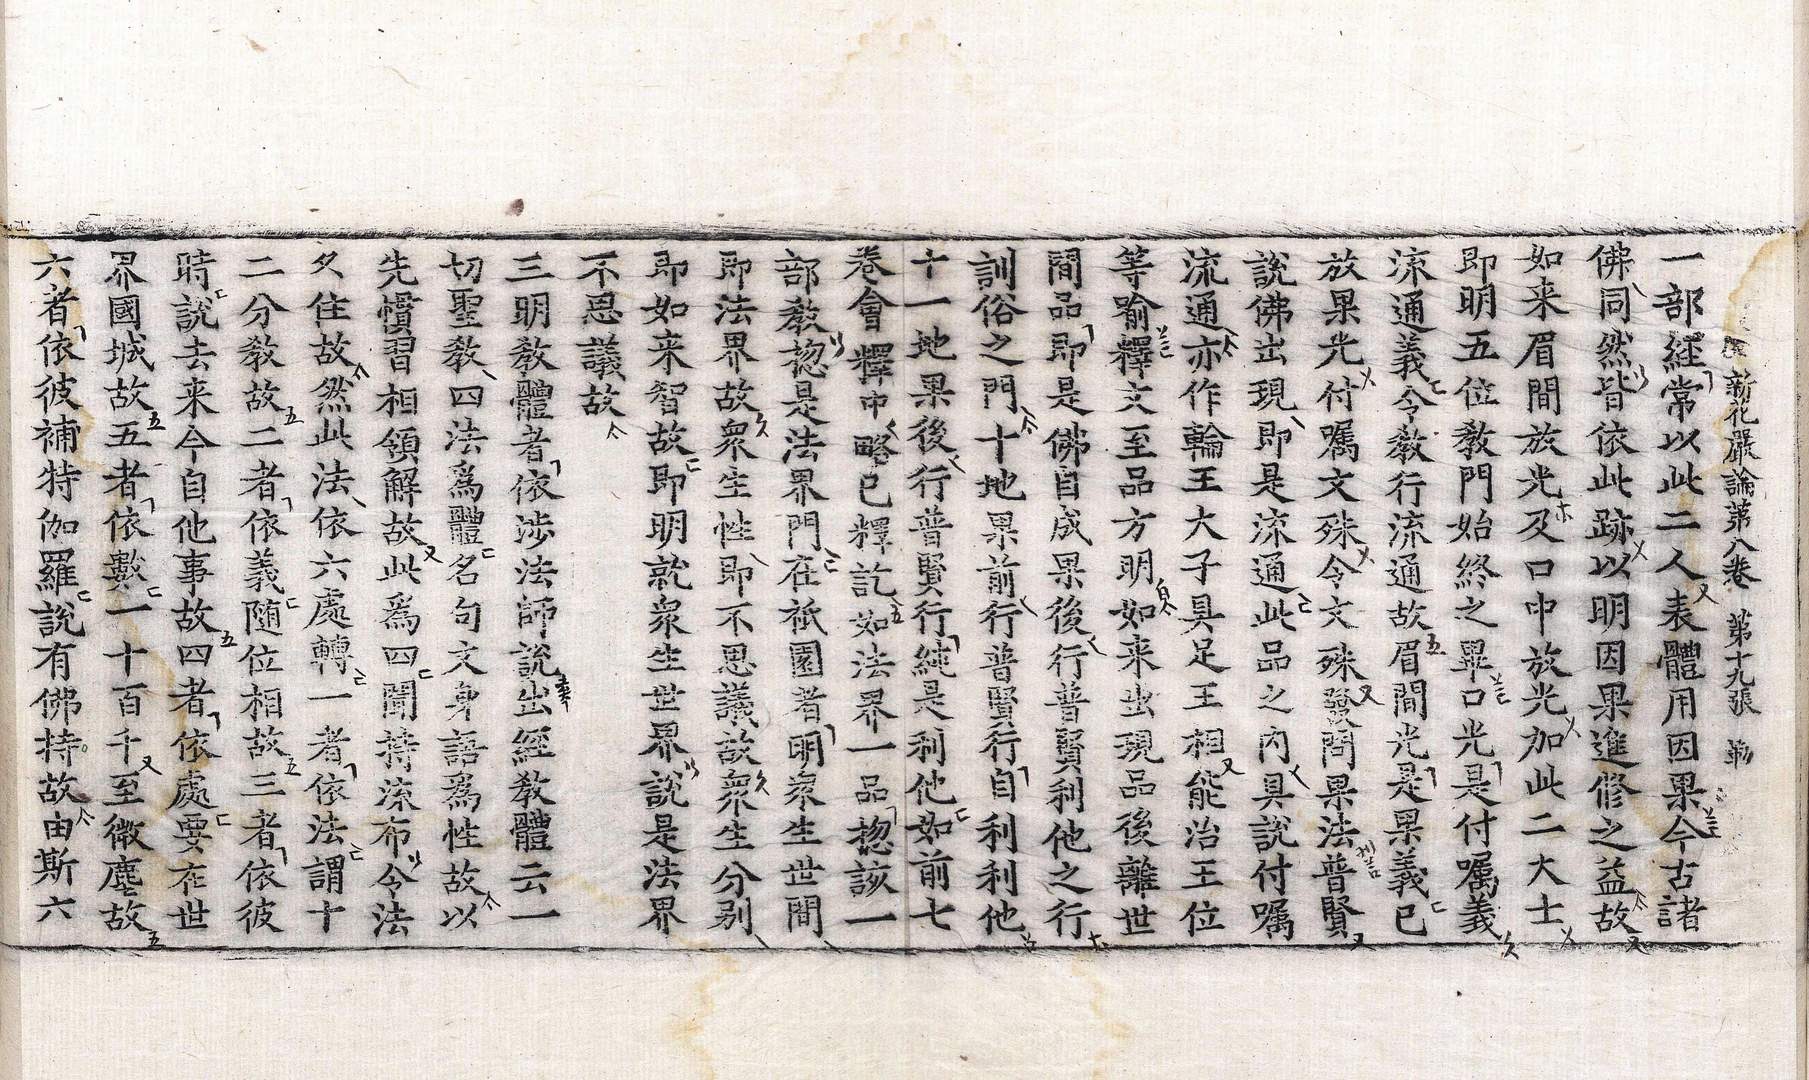 新花嚴論第八卷 第十九張
一部經常以此二人表體用因果今古諸
佛同然皆依此跡以明因果進修之益故
如来眉間放光及口中放光加此二大士
即明五位教門始終之畢口光是付囑義
流通義令教行流通故眉間光是果義已
放果光付囑文殊令文殊發問果法普賢
說佛出現即是流通此品之內具說付囑
流通亦作輪王大子具足王相能治王位
等喻釋文至品方明如来出現品後離世
間品即是佛自成果後行普賢利他之行
訓俗之門十地果前行普賢行自利利他
十一地果後行普賢行純是利他如前七
卷會釋中略已釋訖如法界一品揔該一
部教揔是法界門在祇園者明衆生世間
即法界故衆生性即不思議故衆生分别
即如来智故即明就衆生世界說是法界
不思議故
三明教體者依涉法師說出經教體云一
切聖教四法爲體名句文身語爲性故以
先慣習相領解故此爲四聞持流布令法
久住故然此法依六處轉一者依法謂十
二分教故二者依義随位相故三者依彼
時說去来今自他事故四者依處要在世
界國城故五者依數一十百千至微塵故
六者依彼補特伽羅說有佛持故由斯六